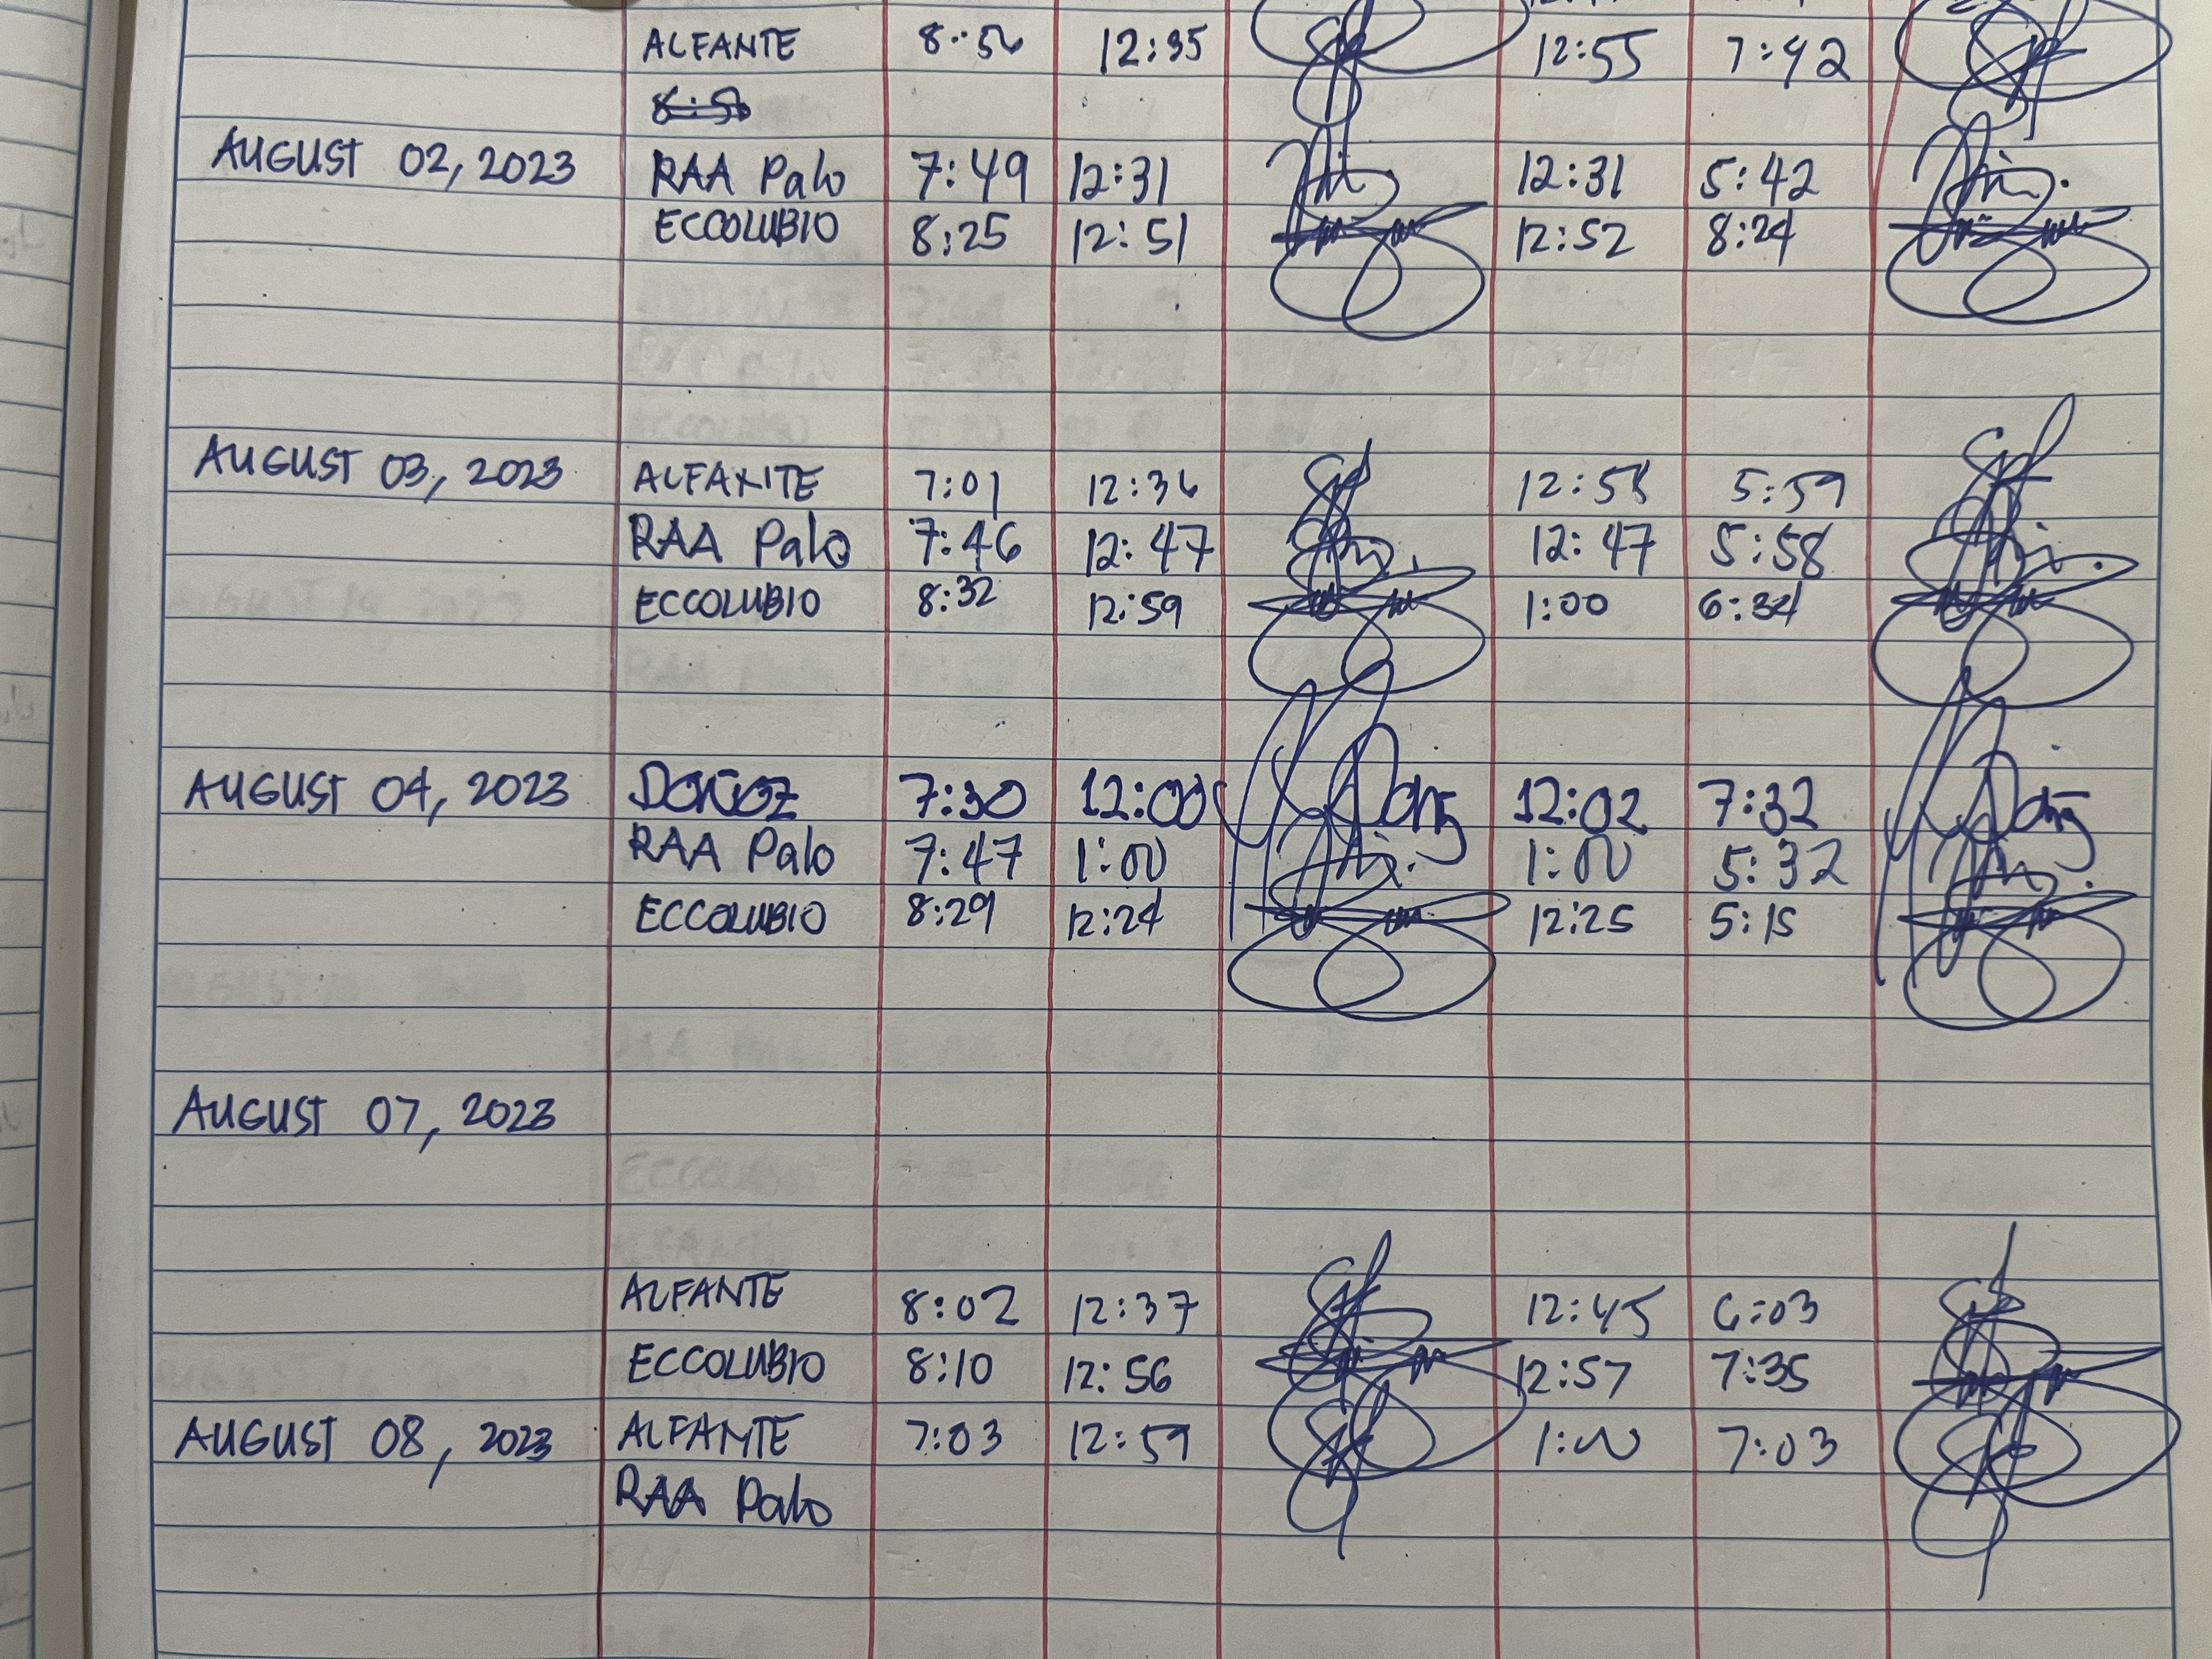 ALFANTE 8:56 12:35 12:55 7:42
AUGUST 02, 2023 RAA Palo 7:49 12:31 12:31 5:42
ECCOLUBIO 8:25 12:51 12:52 8:24
AUGUST 03, 2023 ALFANTE 7:01 12:36 12:58 5:59
RAA Palo 7:46 12:47 12:47 5:58
ECCOLUBIO 8:32 12:59 1:00 6:34
AUGUST 04, 2023 7:30 12:00 12:02 7:32
RAA Palo 7:47 1:00 1:00 5:32
ECCOLUBIO 8:29 12:24 12:25 5:15
AUGUST 07, 2023
ALFANTE 8:02 12:37 12:45 6:03
ECCOLUBIO 8:10 12:56 12:57 7:35
AUGUST 08, 2023 ALFANTE 7:03 12:59 1:00 7:03
RAA Palo